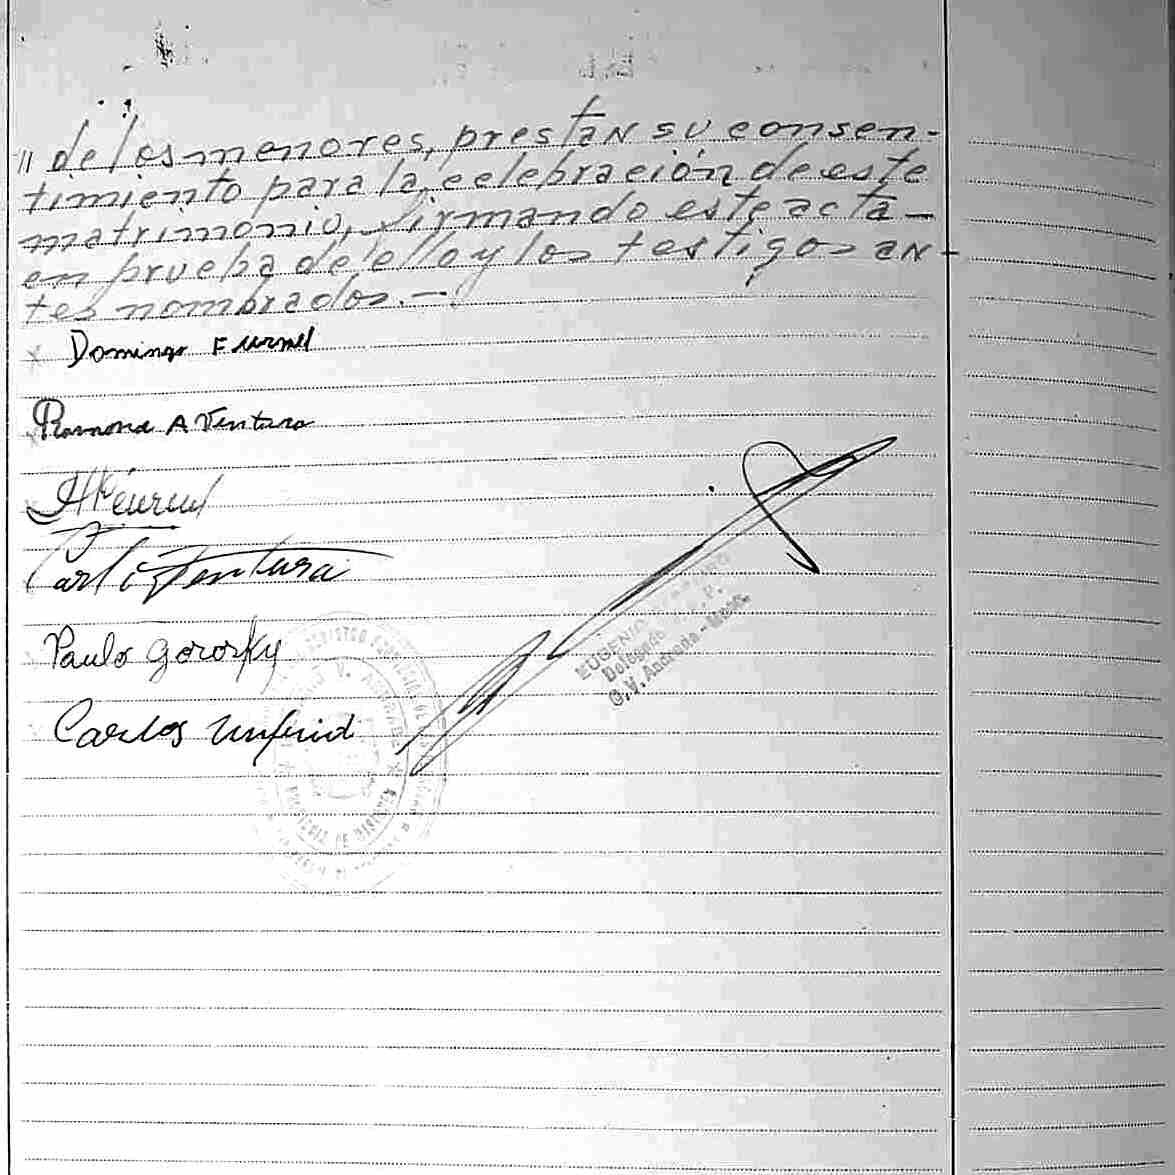 // de los menores, prestan su consen-
timiento para la celebración de este
matrimonio, firmando este acta-
en prueba de ello y los testigos an-
tes nombrados.-
Domingo
Ramona A Ventura
Carlos Ventura
Paulo Gororky
Carlos Unfrid
EUGENIO
Delegado R. P.
G. V. Andrade - Mnes.
PROVINCIA DE MISIONES